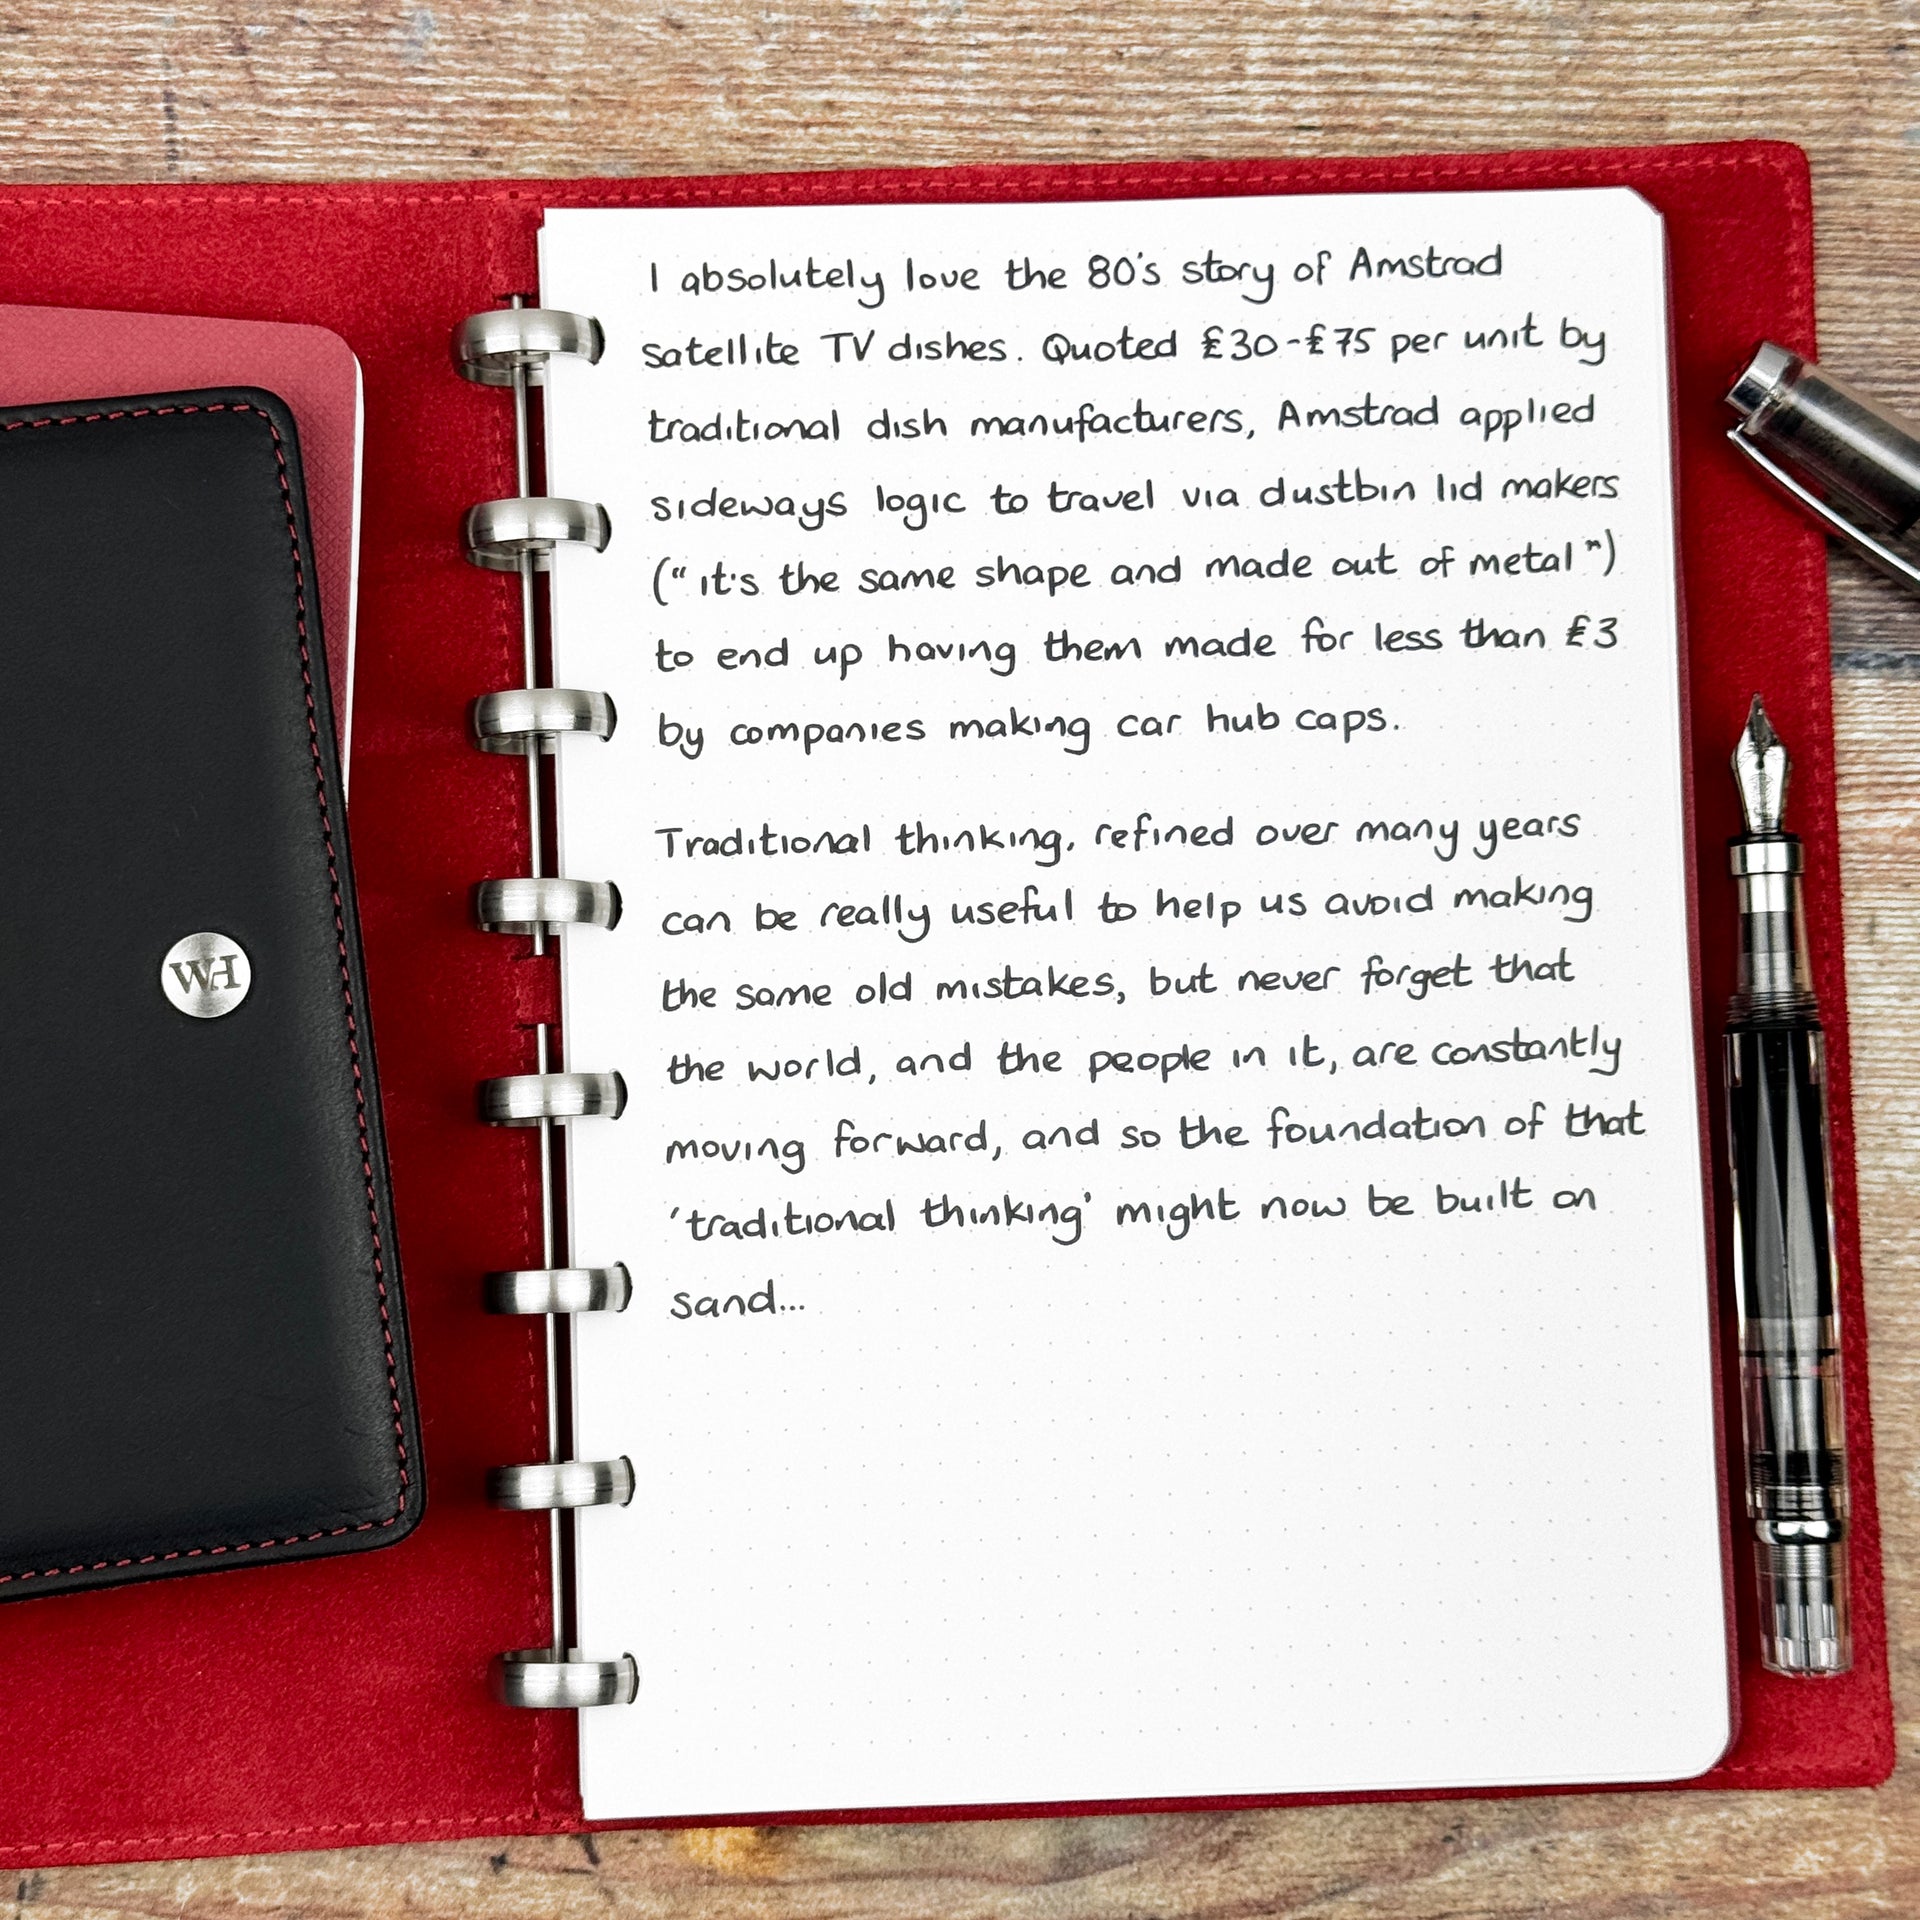 I absolutely love the 80's story of Amstrad
satellite TV dishes. Quoted £30-£75 per unit by
traditional dish manufacturers, Amstrad applied
sideways logic to travel via dustbin lid makers
("it's the same shape and made out of metal")
to end up having them made for less than £3
by companies making car hub caps.
Traditional thinking, refined over many years
can be really useful to help us avoid making
the same old mistakes, but never forget that
the world, and the people in it, are constantly
moving forward, and so the foundation of that
'traditional thinking' might now be built on
sand...
WH